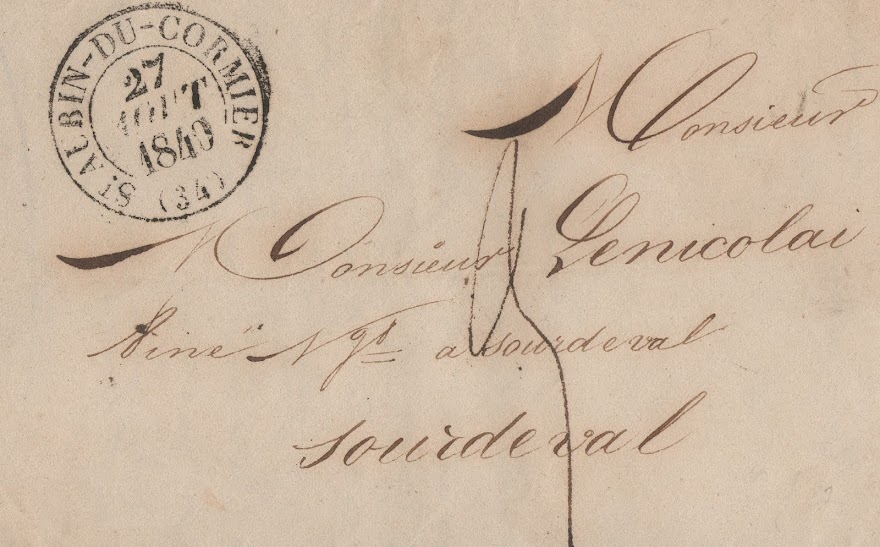 ST AUBIN-DU-CORMIER (34)
27
AOUT
1840
Monsieur
Monsieur Lenicolai
Ainé Ngt a sourdeval
sourdeval